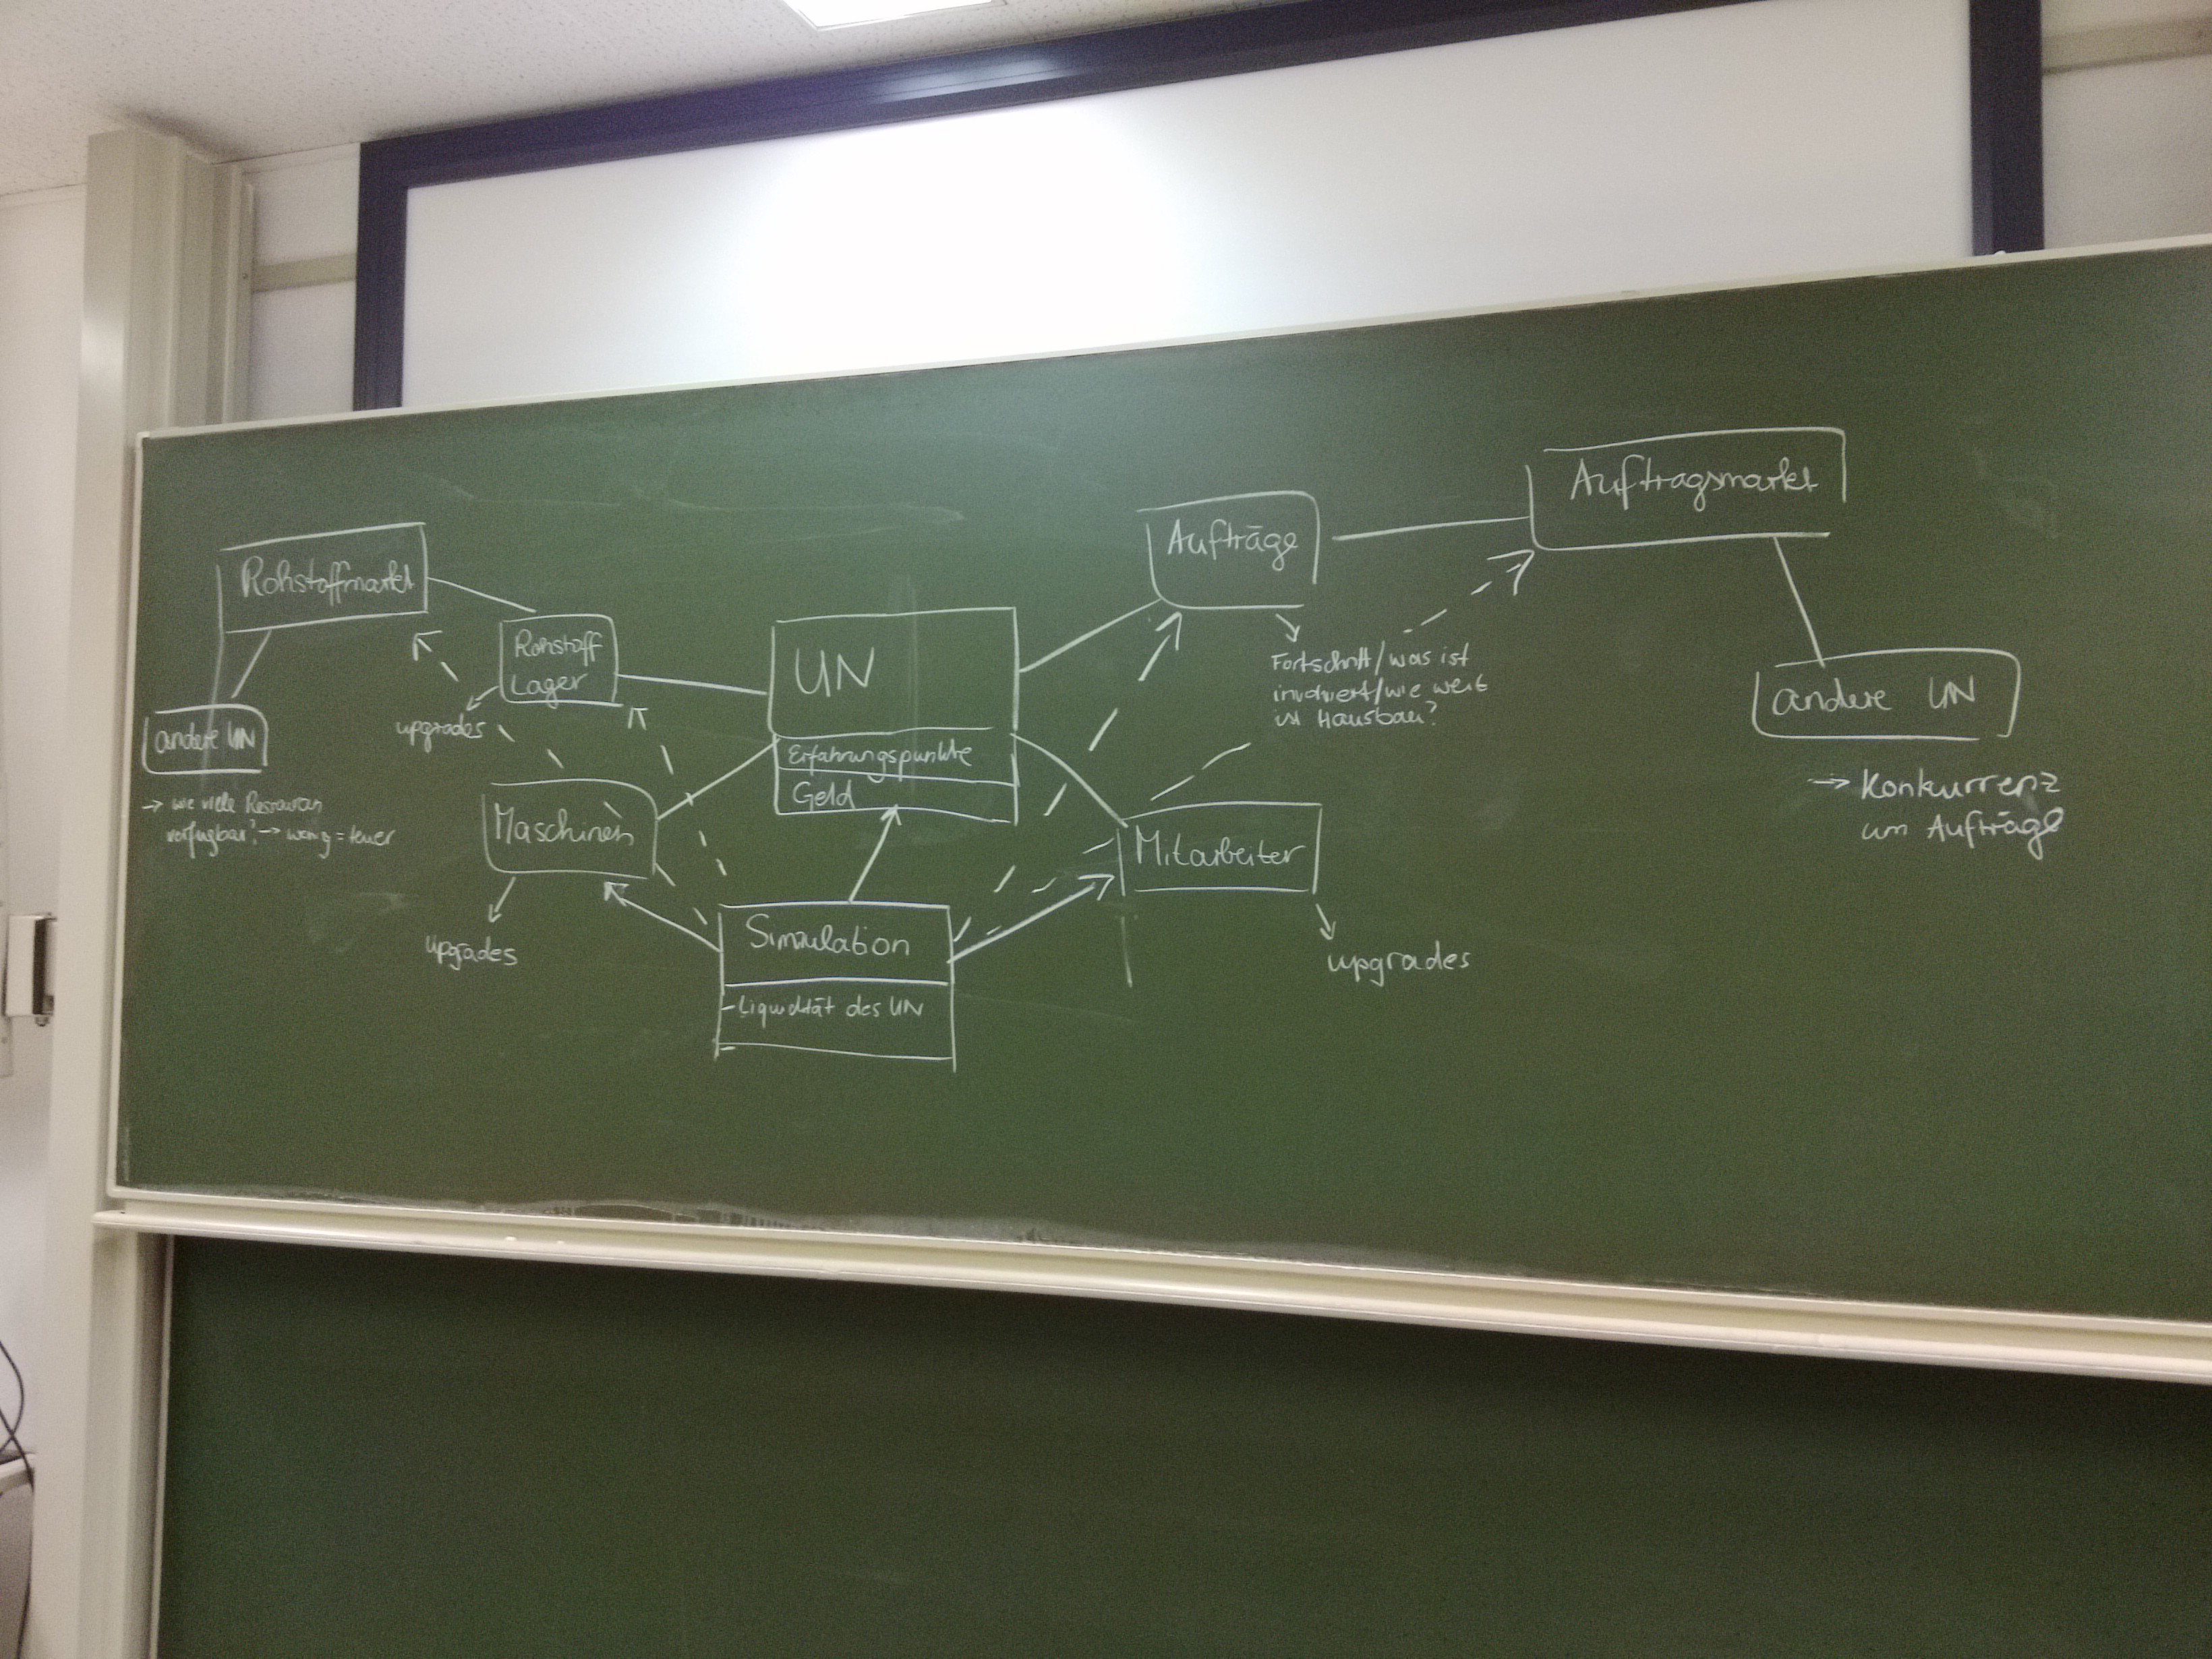 Rohstoffmarkt
andere UN
→ wie viele
verfügbar? → wenig = teuer
Rohstoff
Lager
upgrades
Maschinen
upgrades
UN
Erfahrungspunkte
Geld
Simulation
- Liquidität des UN
Aufträge
Fortschritt / was ist
involviert / wie weit
ist Hausbau?
Mitarbeiter
upgrades
Auftragsmarkt
andere UN
→ Konkurrenz
um Aufträge